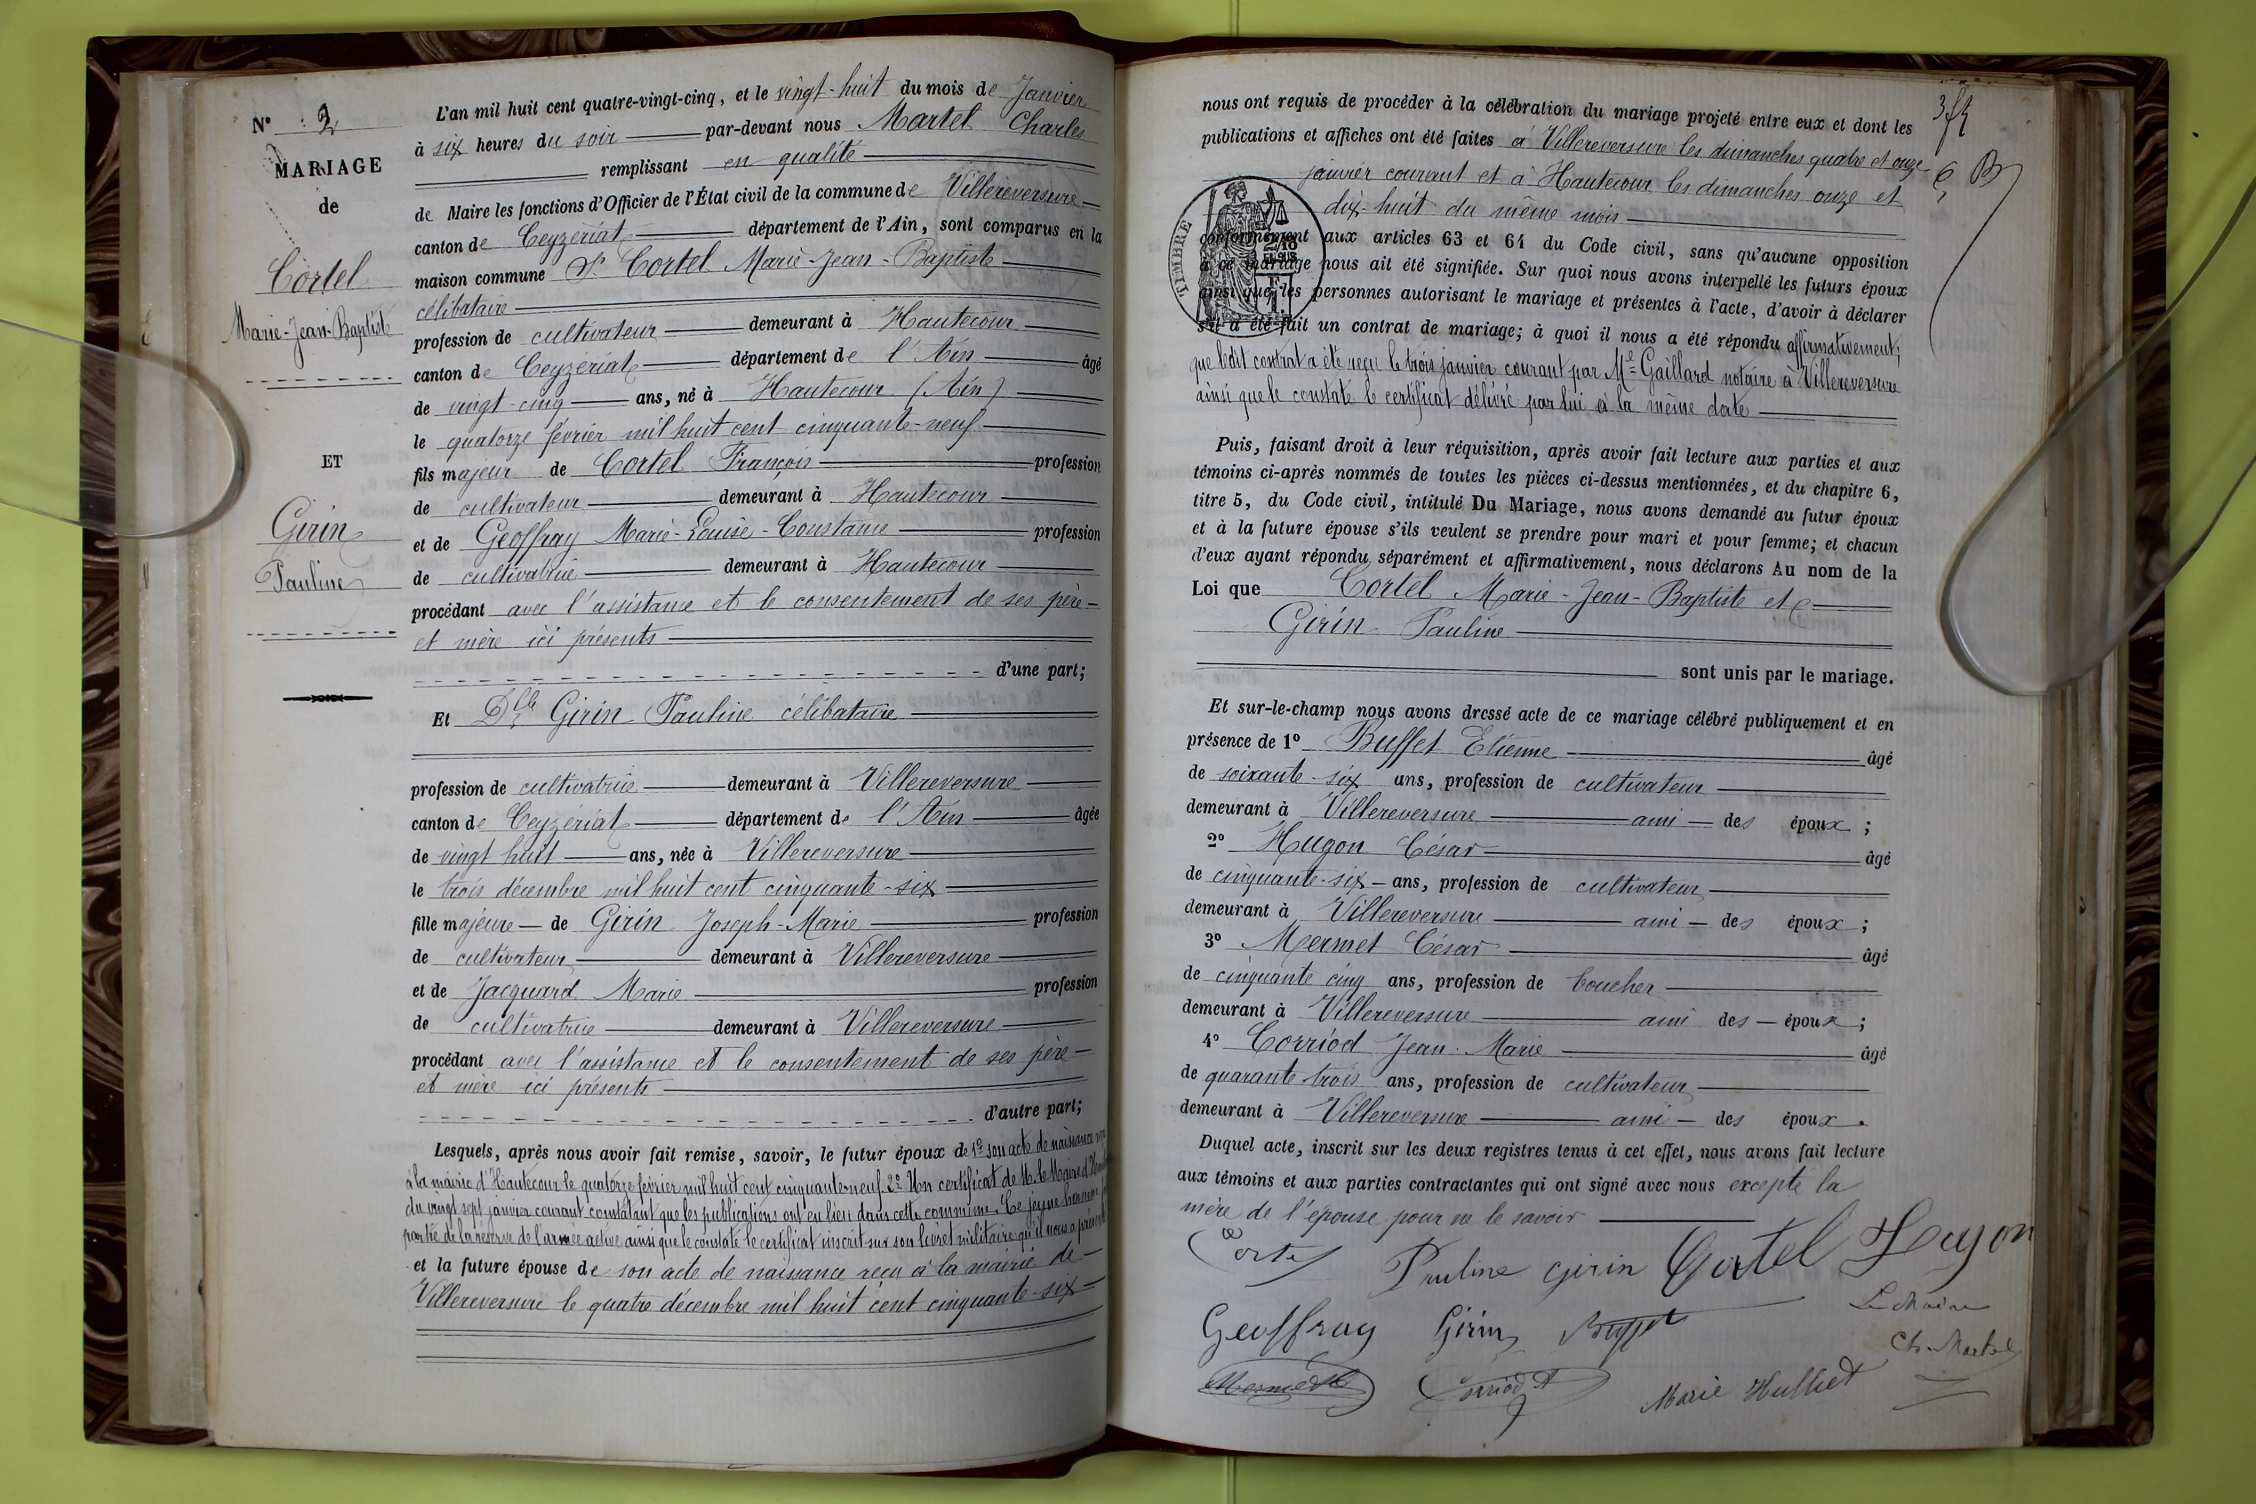 N° 2
MARIAGE
de
Cortel
Marie-Jean-Baptiste
ET
Girin
Pauline
L'an mil huit cent quatre-vingt-cinq, et le vingt-huit du mois de Janvier
à six heures du soir par-devant nous Martel Charles
remplissant en qualité
de Maire les fonctions d'Officier de l'État civil de la commune de Villereversure
canton de Ceyzériat département de l'Ain, sont comparus en la
maison commune Sr Cortel Marie-Jean-Baptiste
célibataire
profession de cultivateur demeurant à Hautecour
canton de Ceyzériat département de l'Ain âgé
de vingt-cinq ans, né à Hautecour (Ain)
le quatorze février mil huit cent cinquante-neuf
fils majeur de Cortel François profession
de cultivateur demeurant à Hautecour
et de Geoffray Marie-Louise-Constance profession
de cultivatrice demeurant à Hautecour
procédant avec l'assistance et le consentement de ses père
et mère ici présents
d'une part;
Et Dlle Girin Pauline célibataire
profession de cultivatrice demeurant à Villereversure
canton de Ceyzériat département de l'Ain âgée
de vingt huit ans, née à Villereversure
le trois décembre mil huit cent cinquante-six
fille majeure de Girin Joseph-Marie profession
de cultivateur demeurant à Villereversure
et de Jacquard Marie profession
de cultivatrice demeurant à Villereversure
procédant avec l'assistance et le consentement de ses père
et mère ici présents
d'autre part;
Lesquels, après nous avoir fait remise, savoir, le futur époux de 1° son acte de naissance
à la mairie d'Hautecour le quatorze février mil huit cent cinquante neuf. 2° Un certificat de M. le Maire
du vingt sept janvier courant constatant que les publications ont eu lieu dans cette commune. Ce jeune homme
partie de la réserve de l'armée active ainsi que le constate le certificat inscrit sur son livret militaire qu'il nous a
et la future épouse de son acte de naissance reçu à la mairie de
Villereversure le quatre décembre mil huit cent cinquante-six
nous ont requis de procéder à la célébration du mariage projeté entre eux et dont les
publications et affiches ont été faites à Villereversure les dimanches quatre et onze
janvier courant et à Hautecour les dimanches onze et
dix-huit du même mois
TIMBRE
conformément aux articles 63 et 64 du Code civil, sans qu'aucune opposition
à ce mariage nous ait été signifiée. Sur quoi nous avons interpellé les futurs époux
ainsi que les personnes autorisant le mariage et présentes à l'acte, d'avoir à déclarer
s'il a été fait un contrat de mariage; à quoi il nous a été répondu affirmativement;
que ledit contrat a été reçu le trois janvier courant par Me Gaillard notaire à Villereversure
ainsi que le constate le certificat délivré par lui à la même date
Puis, faisant droit à leur réquisition, après avoir fait lecture aux parties et aux
témoins ci-après nommés de toutes les pièces ci-dessus mentionnées, et du chapitre 6,
titre 5, du Code civil, intitulé Du Mariage, nous avons demandé au futur époux
et à la future épouse s'ils veulent se prendre pour mari et pour femme; et chacun
d'eux ayant répondu séparément et affirmativement, nous déclarons Au nom de la
Loi que Cortel Marie-Jean-Baptiste et
Girin Pauline
sont unis par le mariage.
Et sur-le-champ nous avons dressé acte de ce mariage célébré publiquement et en
présence de 1° Buffet Etienne âgé
de soixante-six ans, profession de cultivateur
demeurant à Villereversure ami des époux;
2° Hugon César âgé
de cinquante-six ans, profession de cultivateur
demeurant à Villereversure ami des époux;
3° Mermet César âgé
de cinquante cinq ans, profession de boucher
demeurant à Villereversure ami des époux;
4° Corriod Jean-Marie âgé
de quarante-trois ans, profession de cultivateur
demeurant à Villereversure ami des époux.
Duquel acte, inscrit sur les deux registres tenus à cet effet, nous avons fait lecture
aux témoins et aux parties contractantes qui ont signé avec nous excepté la
mère de l'épouse pour ne le savoir
Pauline Girin Cortel Hugon
Geoffray Girin Buffet Le Maire
Ch. Martel
Mermet Corriod Marie Hulliet